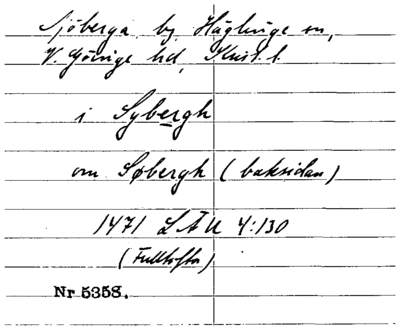 Sjöberga by Häglinge sn,
V. Göinge hd, Krist. l.
i Sybergh
om Søbergh (baksidan)
1471 LÄU 4:130
(Fulltofta)
Nr 5358.